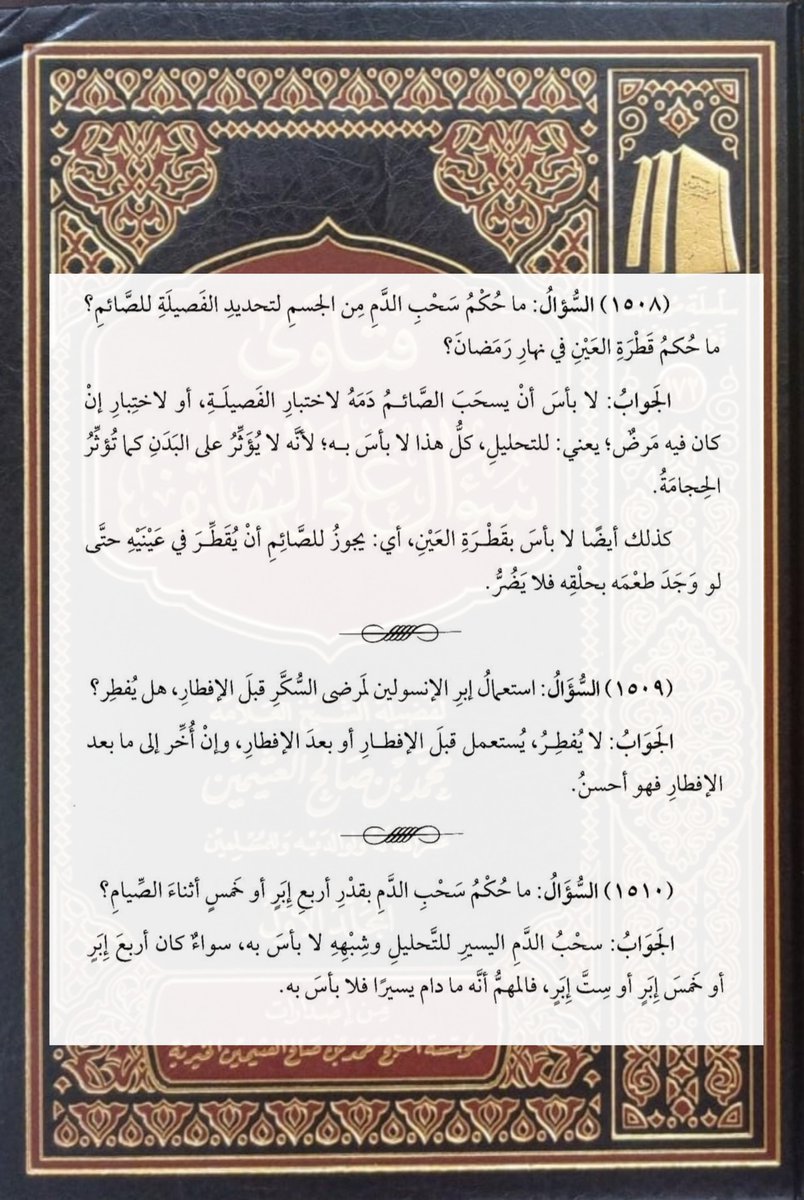 (١٥٠٨) السُّؤالُ: ما حُكْمُ سَحْبِ الدَّمِ مِن الجسمِ لتحديدِ الفَصيلَةِ للصَّائمِ؟
ما حُكمُ قَطْرَةِ العَيْنِ في نهارِ رَمَضانَ؟
الجَوابُ: لا بأسَ أنْ يسحَبَ الصَّائمُ دَمَهُ لاختبارِ الفَصيلَةِ، أو لاختِبارِ إنْ
كان فيه مَرضٌ؛ يعني: للتحليلِ، كلُّ هذا لا بأسَ به؛ لأنَّه لا يُؤَثِّرُ على البَدَنِ كما تُؤثِّرُ
الحِجامَةُ.
كذلك أيضًا لا بأسَ بقَطْرَةِ العَيْنِ، أي: يجوزُ للصَّائِمِ أنْ يُقَطِّرَ في عَيْنَيْهِ حتَّى
لو وَجَدَ طعْمَه بحلْقِه فلا يَضُرُّ.
(١٥٠٩) السُّؤَالُ: استعمالُ إبرِ الإنسولين لمَرضى السُّكَّرِ قبلَ الإفطارِ، هل يُفطِر؟
الجَوَابُ: لا يُفطِرُ، يُستعمل قبلَ الإفطارِ أو بعدَ الإفطارِ، وإنْ أُخِّر إلى ما بعد
الإفطارِ فهو أحسنُ.
(١٥١٠) السُّؤَالُ: ما حُكْمُ سَحْبِ الدَّمِ بقدْرِ أربعِ إِبَرٍ أو خَمسٍ أثناءَ الصِّيامِ؟
الجَوَابُ: سحْبُ الدَّمِ اليسيرِ للتَّحليلِ وشِبْهِهِ لا بأسَ به، سواءٌ كان أربعَ إِبَرٍ
أو خَمسَ إِبَرٍ أو سِتَّ إِبَرٍ، فالمهمُّ أنَّه ما دام يسيرًا فلا بأسَ به.